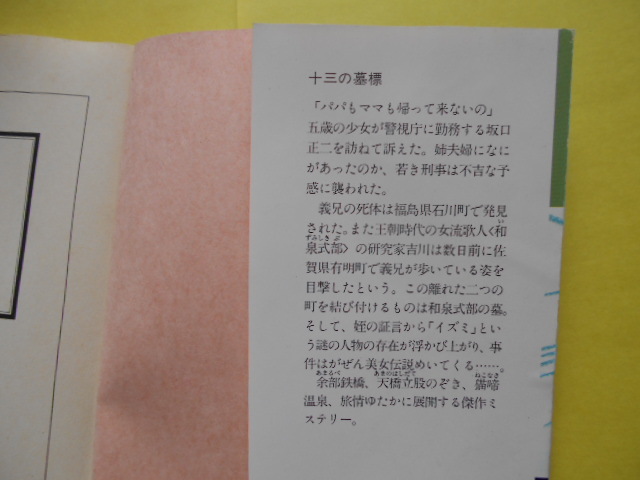 十三の墓標
「パパもママも帰って来ないの」
五歳の少女が警視庁に勤務する坂口
正二を訪ねて訴えた。姉夫婦になに
があったのか、若き刑事は不吉な予
感に襲われた。
義兄の死体は福島県石川町で発見
された。また王朝時代の女流歌人〈和
泉式部〉の研究家吉川は数日前に佐
賀県有明町で義兄が歩いている姿を
目撃したという。この離れた二つの
町を結び付けるものは和泉式部の墓。
そして、姪の証言から「イズミ」とい
う謎の人物の存在が浮かび上がり、事
件はがぜん美女伝説めいてくる……。
余部鉄橋、天橋立股のぞき、猫啼
温泉、旅情ゆたかに展開する傑作ミ
ステリー。